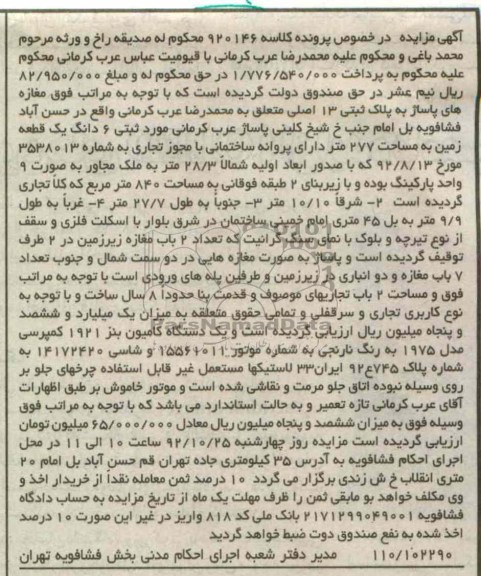 آگهی مزایده در خصوص پرونده کلاسه ۹۲۰۱۴۶ محکوم له صدیقه راخ و ورثه مرحوم
محمد باغی و محکوم علیه محمدرضا عرب کرمانی با قیومیت عباس عرب کرمانی محکوم
علیه محکوم به پرداخت ۱/۷۷۶/۵۴۰/۰۰۰ در حق محکوم له و مبلغ ۸۲/۹۵۰/۰۰۰
ریال نیم عشر در حق صندوق دولت گردیده است که با توجه به مراتب فوق مغازه
های پاساژ به پلاک ثبتی ۱۳ اصلی متعلق به محمدرضا عرب کرمانی واقع در حسن آباد
فشافویه بل امام جنب خ شیخ کلینی پاساژ عرب کرمانی مورد ثبتی ۶ دانگ یک قطعه
زمین به مساحت ۲۷۷ متر دارای پروانه ساختمانی با مجوز تجاری به شماره ۳۵۳۸۰۱۳
مورخ ۹۲/۸/۱۳ که با صدور ابعاد اولیه شمالاً ۲۸/۳ متر به ملک مجاور به صورت ۹
واحد پارکینگ بوده و با زیربنای ۲ طبقه فوقانی به مساحت ۸۴۰ متر مربع که کلاً تجاری
گردیده است ۲- شرقاً ۱۰/۱۰ متر ۳- جنوباً به طول ۲۷/۷ متر ۴- غرباً به طول
۹/۹ متر به بل ۴۵ متری امام خمینی ساختمان در شرق بلوار با اسکلت فلزی و سقف
از نوع تیرچه و بلوک با نمای سنگ گرانیت که تعداد ۲ باب مغازه زیرزمین در ۲ طرف
توقیف گردیده است و پاساژ به صورت مغازه هایی در دو سمت شمال و جنوب تعداد
۷ باب مغازه و دو انباری در زیرزمین و طرفین پله های ورودی است با توجه به مراتب
فوق و مساحت ۲ باب تجاریهای موصوف و قدمت بنا حدوداً ۸ سال ساخت و با توجه به
نوع کاربری تجاری و سرقفلی و تمامی حقوق متعلقه به میزان یک میلیارد و ششصد
و پنجاه میلیون ریال ارزیابی گردیده است و یک دستگاه کامیون بنز ۱۹۲۱ کمپرسی
مدل ۱۹۷۵ به رنگ نارنجی به شماره موتور ۱۵۵۶۱۰۱۱ و شاسی ۱۴۱۷۲۴۲۰ به
شماره پلاک ۷۴۵ع۹۲ ایران۳۳ لاستیکها مستعمل غیر قابل استفاده چرخهای جلو بر
روی وسیله نبوده اتاق جلو مرمت و نقاشی شده است و موتور خاموش بر طبق اظهارات
آقای عرب کرمانی تازه تعمیر و به حالت استاندارد می باشد که با توجه به مراتب فوق
وسیله فوق به میزان ششصد و پنجاه میلیون ریال معادل ۶۵/۰۰۰/۰۰۰ میلیون تومان
ارزیابی گردیده است مزایده روز چهارشنبه ۹۲/۱۰/۲۵ ساعت ۱۰ الی ۱۱ در محل
اجرای احکام فشافویه به آدرس ۳۵ کیلومتری جاده تهران قم حسن آباد بل امام ۲۰
متری انقلاب خ ش زندی برگزار می گردد ۱۰ درصد ثمن معامله نقداً از خریدار اخذ و
وی مکلف خواهد بو مابقی ثمن را ظرف مهلت یک ماه از تاریخ مزایده به حساب دادگاه
فشافویه ۲۱۷۱۲۹۹۰۴۹۰۰۱ بانک ملی کد ۸۱۸ واریز در غیر این صورت ۱۰ درصد
اخذ شده به نفع صندوق دوت ضبط خواهد گردید
۱۱۰/۱۰۲۲۹۰ مدیر دفتر شعبه اجرای احکام مدنی بخش فشافویه تهران